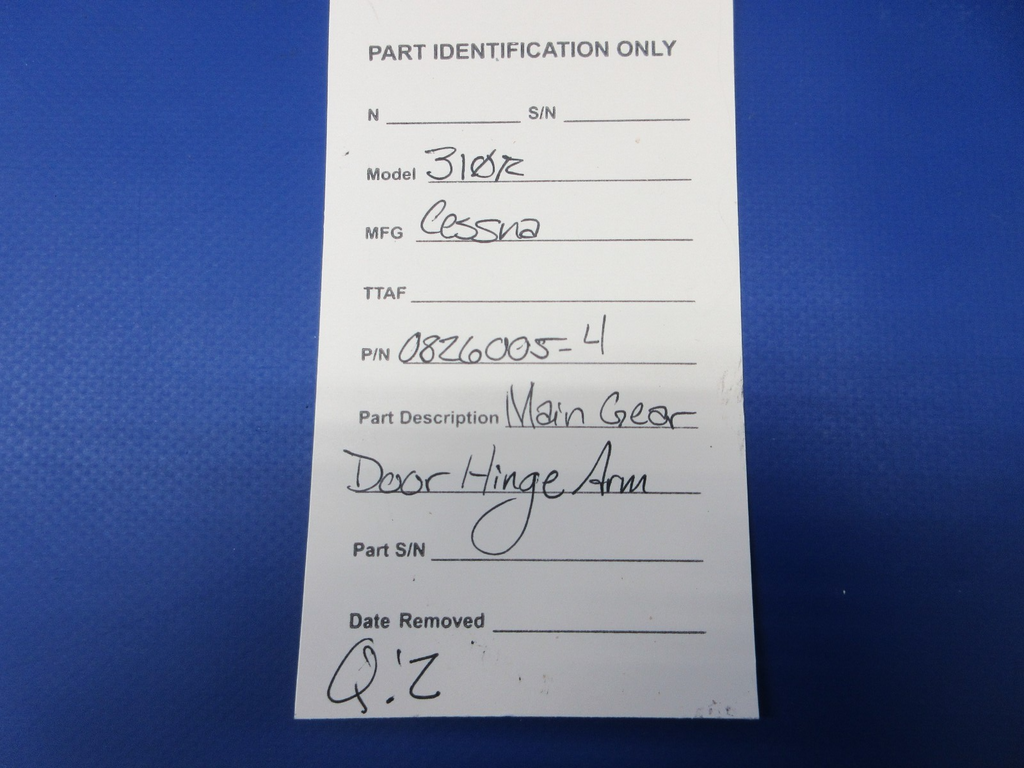 PART IDENTIFICATION ONLY
N ____________ S/N ____________
Model 310R
MFG Cessna
TTAF ____________
P/N 0826005-4
Part Description Main Gear
Door Hinge Arm
Part S/N ____________
Date Removed ____________
Q:2